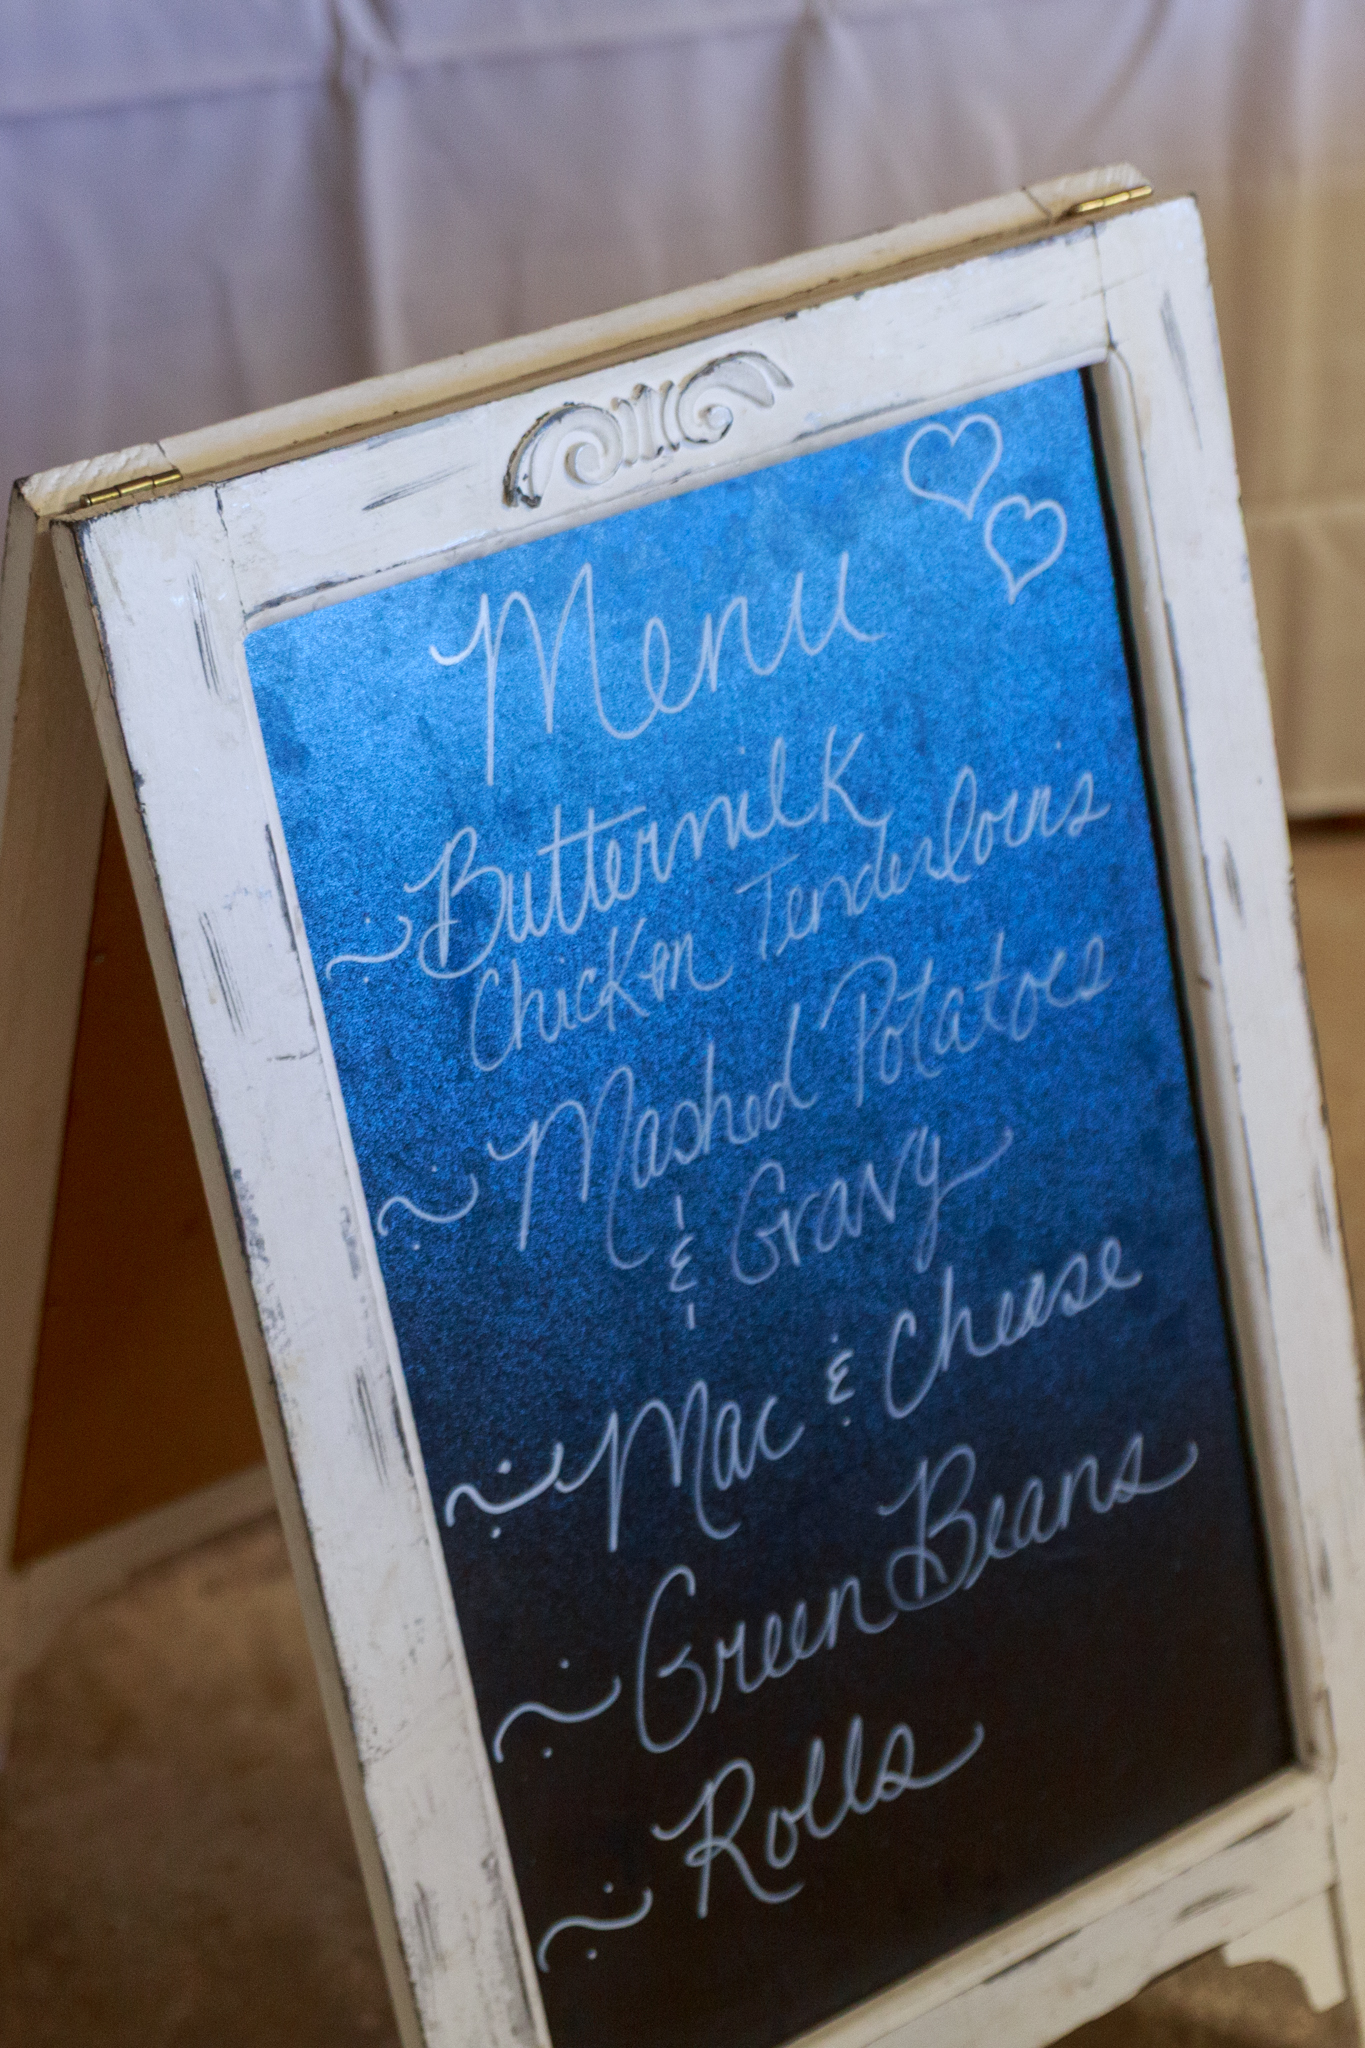 Menu
~ Buttermilk
Chicken Tenderloins
~ Mashed Potatoes
& Gravy
~ Mac & Cheese
~ Green Beans
~ Rolls